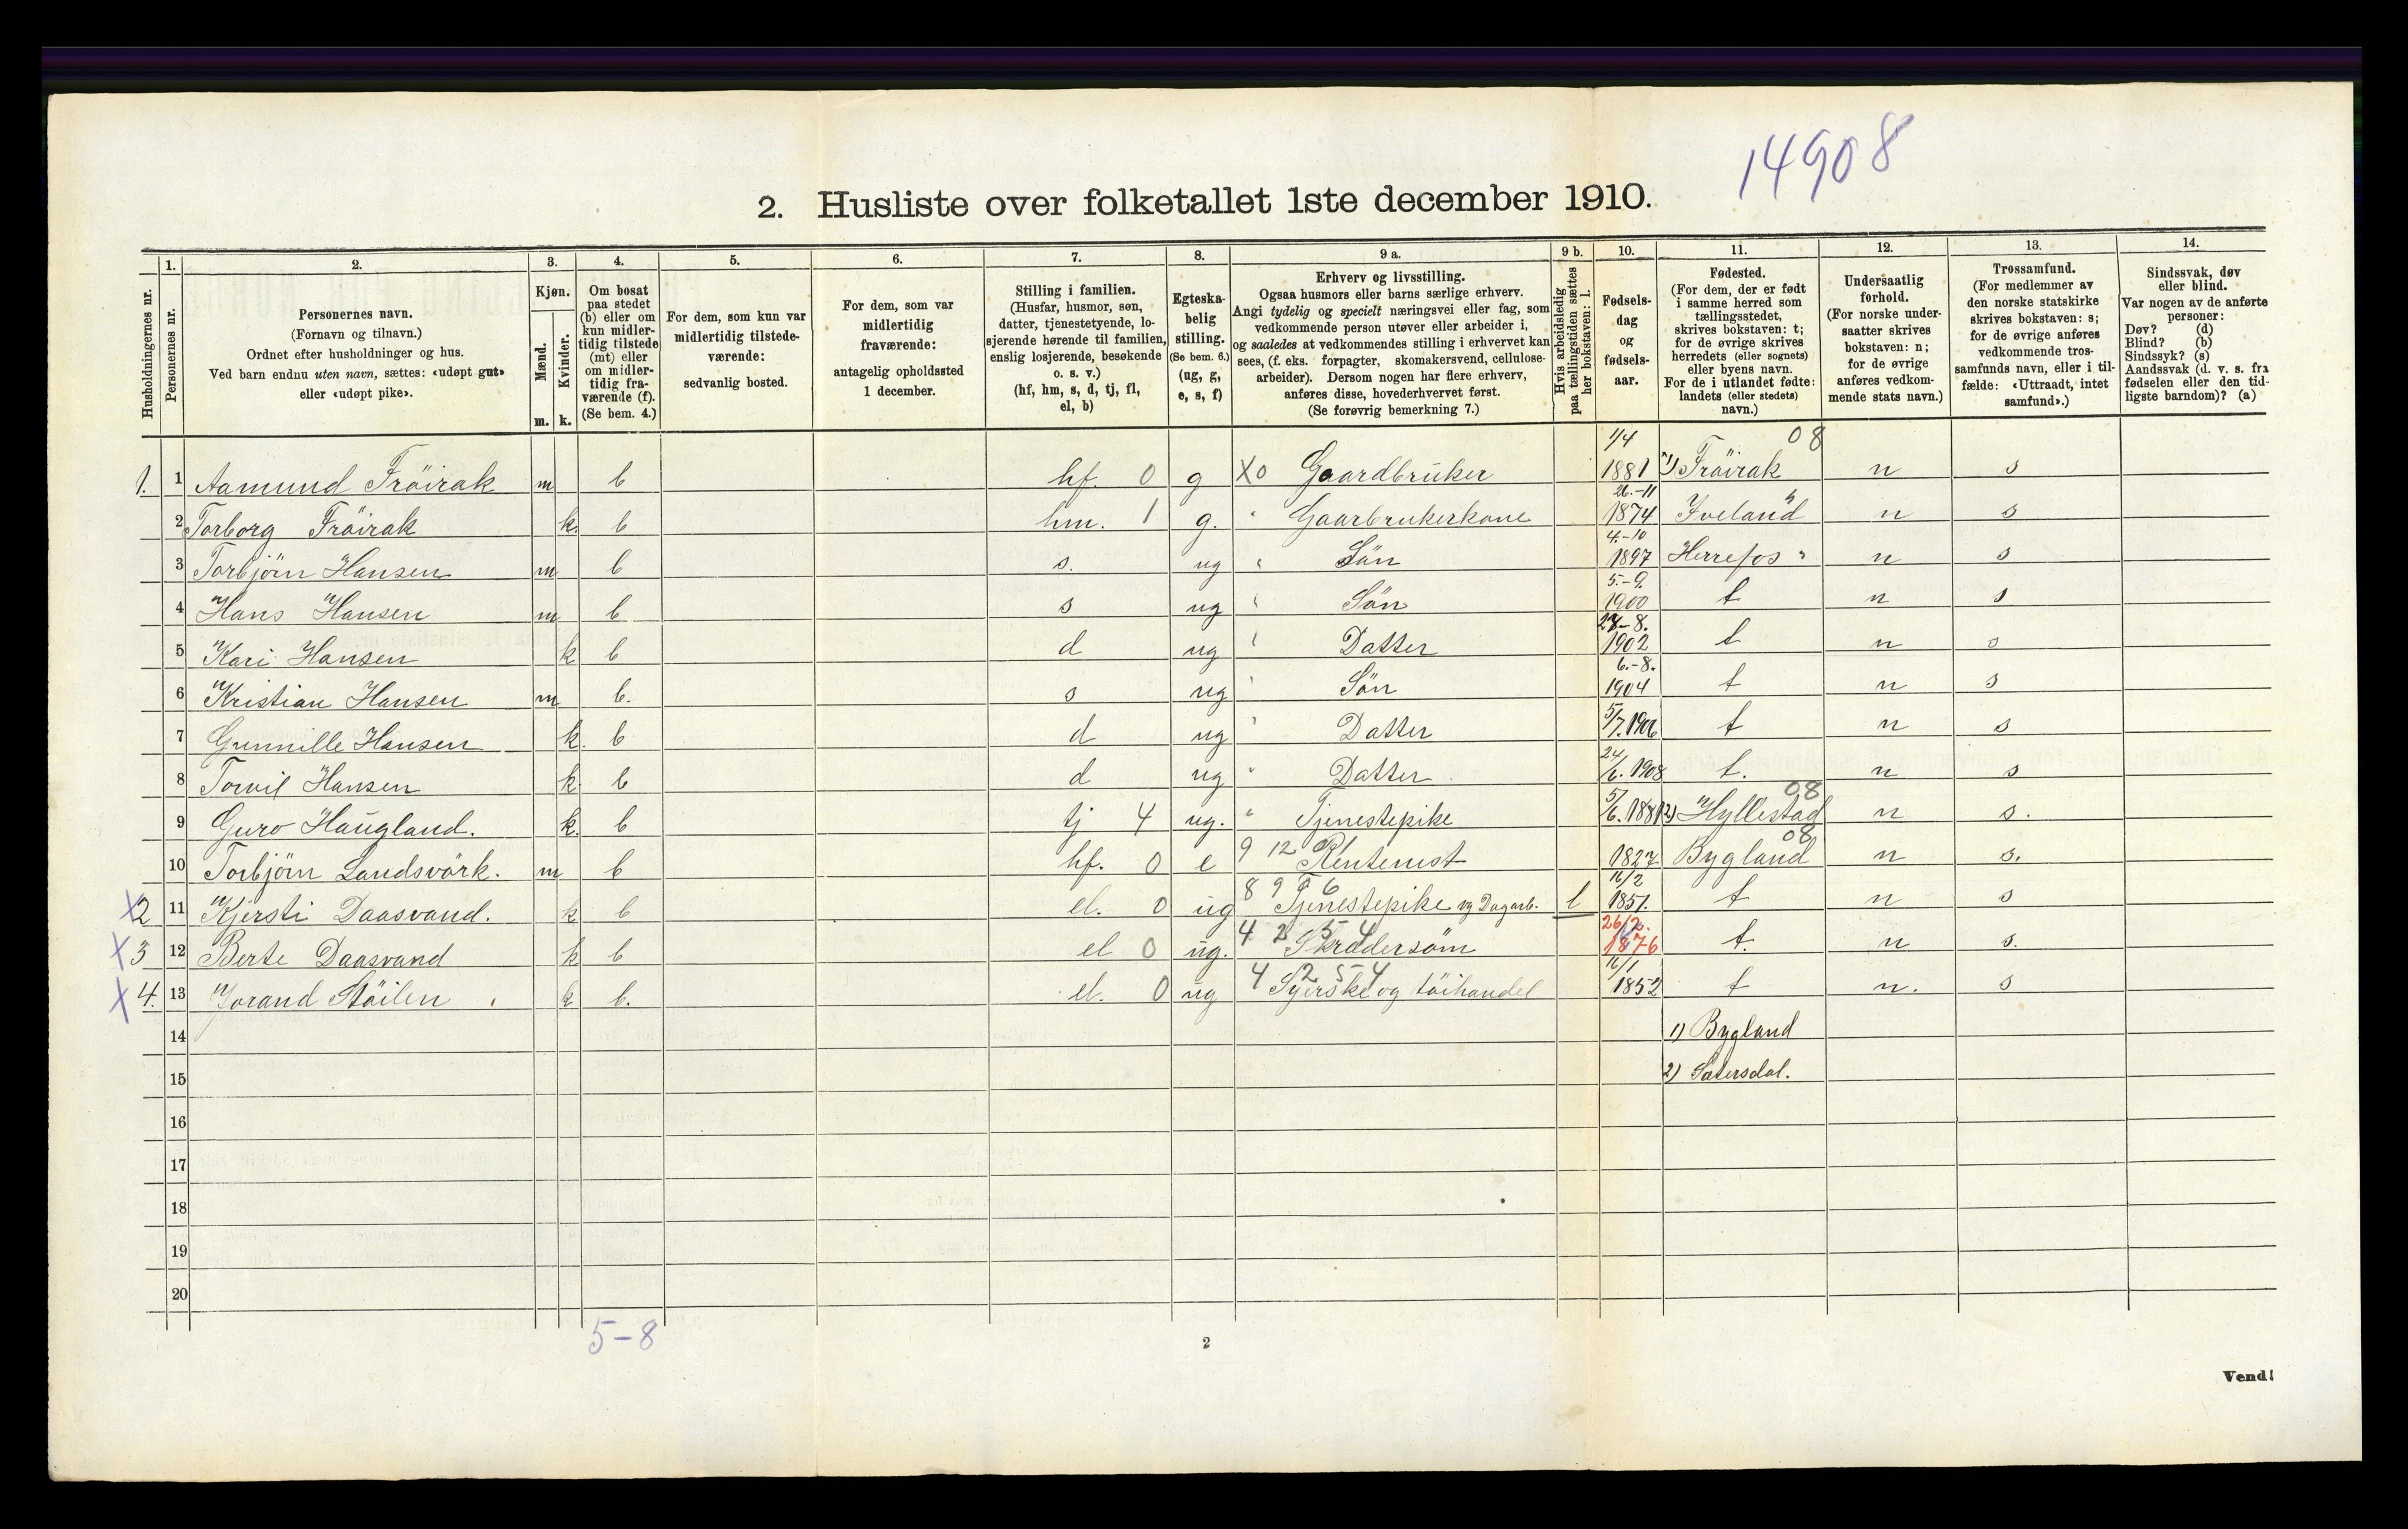 14908
2. Husliste over folketallet 1ste december 1910.
Husholdningernes nr.
1. Personernes nr.
2. Personernes navn.
(Fornavn og tilnavn.)
Ordnet efter husholdninger og hus.
Ved barn endnu uten navn, sættes: «udøpt gut»
eller «udøpt pike».
3. Kjøn.
Mænd. m.
Kvinder. k.
4. Om bosat
paa stedet
(b) eller om
kun midler-
tidig tilstede
(mt) eller
om midler-
tidig fra-
værende (f).
(Se bem. 4.)
5. For dem, som kun var
midlertidig tilstede-
værende:
sedvanlig bosted.
6. For dem, som var
midlertidig
fraværende:
antagelig opholdssted
1 december.
7. Stilling i familien.
(Husfar, husmor, søn,
datter, tjenestetyende, lo-
sjerende hørende til familien,
enslig losjerende, besøkende
o. s. v.)
(hf, hm, s, d, tj, fl,
el, b)
8. Egteska-
belig
stilling.
(Se bem. 6.)
(ug, g,
e, s, f)
9 a. Erhverv og livsstilling.
Ogsaa husmors eller barns særlige erhverv.
Angi tydelig og specielt næringsvei eller fag, som
vedkommende person utøver eller arbeider i,
og saaledes at vedkommendes stilling i erhvervet kan
sees, (f. eks. forpagter, skomakersvend, cellulose-
arbeider). Dersom nogen har flere erhverv,
anføres disse, hovederhvervet først.
(Se forøvrig bemerkning 7.)
9 b. Hvis arbeidsledig
paa tællingstiden sættes
her bokstaven: l.
10. Fødsels-
dag
og
fødsels-
aar.
11. Fødested.
(For dem, der er født
i samme herred som
tællingsstedet,
skrives bokstaven: t;
for de øvrige skrives
herredets (eller sognets)
eller byens navn.
For de i utlandet fødte:
landets (eller stedets)
navn.)
12. Undersaatlig
forhold.
(For norske under-
saatter skrives
bokstaven: n;
for de øvrige
anføres vedkom-
mende stats navn.)
13. Trossamfund.
(For medlemmer av
den norske statskirke
skrives bokstaven: s;
for de øvrige anføres
vedkommende tros-
samfunds navn, eller i til-
fælde: «Uttraadt, intet
samfund».)
14. Sindssvak, døv
eller blind.
Var nogen av de anførte
personer:
Døv? (d)
Blind? (b)
Sindssyk? (s)
Aandssvak (d. v. s. fra
fødselen eller den tid-
ligste barndom)? (a)
1. 1 Aamund Fröirak m b hf. 0 g X0 Gaardbruker 1/4 1881 1) Fröirak 08 n s
2 Torborg Fröirak k. b hm. 1 g. " Gaarbrukerkone 26.-11 1874 Iveland n s
3 Torbjörn Hansen m b s. ug " Sön 4.-10 1897 Herrefos " n s
4 Hans Hansen m b s ug " Sön 5.-9. 1900 t n s
5 Kari Hansen k b d ug " Datter 27-8. 1902 t n s
6 Kristian Hansen m b. s ug " Sön 6.-8. 1904 t n s
7 Gunnille Hansen k. b d ug " Datter 5/7. 1906 t n s
8 Torvil Hansen k b d ug " Datter 24/6. 1908 t. n s
9 Guro Haugland. k. b tj 4 ug. " Tjenestepike 5/6. 1881 2) Hyllestad 08 n s.
10 Torbjörn Landsvörk. m b hf. 0 e 9 12 Rentenist 1827 Bygland 08 n s.
X2 11 Kjersti Daasvand. k b el. 0 ug 8 9 9 6 Tjenestepike og Dagarb. l 16/2 1851. t n s
X 3 12 Berte Daasvand k b el 0 ug. 4 2 5 4 Skrædersöm 26/2. 1876 t. n s.
X 4. 13 Jorand Stöilen k b. el. 0 ug 4 2 5 4 Syerske og töihandel 16/1 1852 t n. s
14 1) Bygland
15 2) Sætersdal.
16
17
18
19
20
5-8
2
Vend!